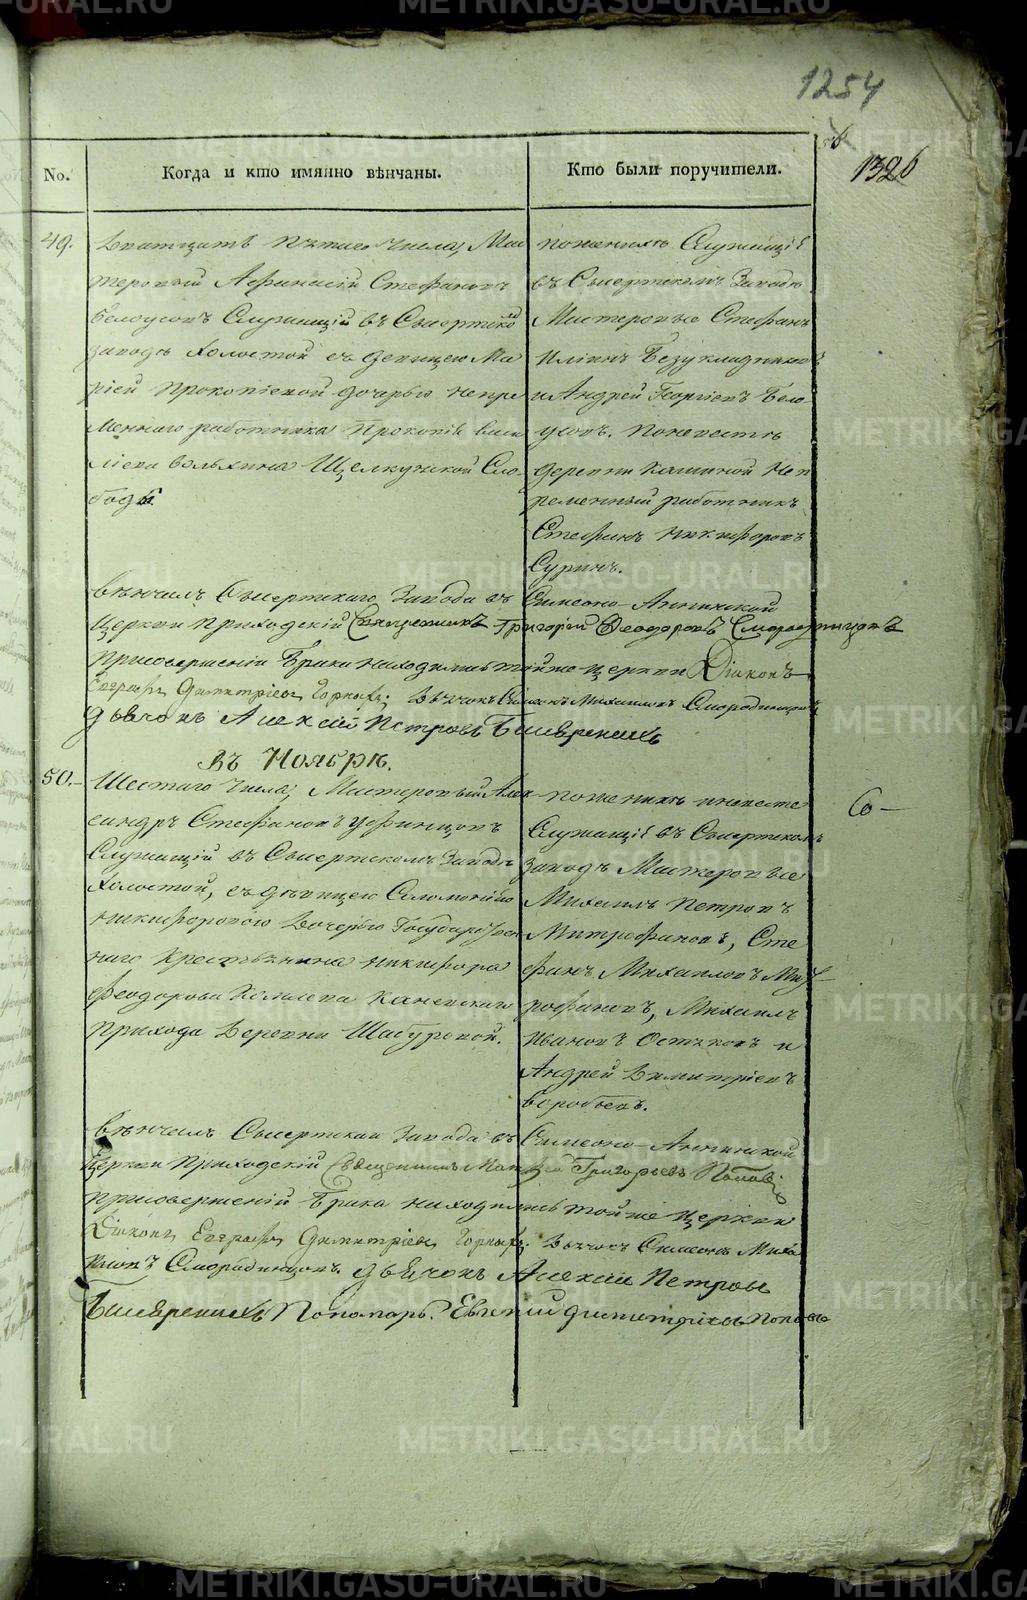 1254
132б
No.
Когда и кто имянно вѣнчаны.
Кто были поручители.
49.
Дватцать пятаго числа, Мас
теровый Афанасій Стефановъ
Белоусовъ Служащій въ Сысертском
заводѣ Холостой съ девицею Ма
ріей Прокопіевой дочерью непре
меннаго работника Прокопія Васи
ліева Щелкунской Сло
боды.
поженихѣ Служащіе
въ Сысертскомъ Заводѣ
Мастеровые Стефанъ
Илiинъ Безукладников
и Андрей Георгіевъ Бело
усовъ. Поневестѣ
деревни Кашиной Неп
ременный работникъ
Стефанъ Никифоровъ
Суринъ.
вѣнчалъ Сысертскаго Завода въ Симеоно-Аннинской
Церкви Приходскій Священникъ Григорій Феодоровъ Смородинцовъ
присовершеніи брака находились тойже церкви Діаконъ
Евграфъ Димитріевъ Горныхъ; Дьячокъ Симеонъ Михаиловъ Смородинцовъ
дьячокъ Алексѣй Петровъ
Въ Ноябрѣ.
50.
Шестаго числа, Мастеровый Алек
сандръ Стефановъ Уфинцовъ
Служащій въ Сысертскомъ Заводѣ
Холостой, съ дѣвицею Соломоніею
Никифоровою Дочерью Государствен
наго Крестьянина Никифора
Феодорова Комлева Каневскаго
прихода Деревни Шабуровой.
поженихѣ иневесте
Служащіе въ Сысертскомъ
заводѣ Мастеровые
Михаилъ Петровъ
Митрофановъ, Сте
фанъ Михаиловъ Мит
рофановъ, Михаилъ
Ивановъ Остяковъ и
Андрей Димитріевъ
Воробьевъ.
Со-
вѣнчалъ Сысертскаго Завода въ Симеоно-Аннинской
Церкви Приходскій Священникъ Григорьевъ Поповъ;
присовершеніи брака находились тойже церкви
Діаконъ Евграфъ Димитріевъ Горныхъ; Дьячокъ Симеонъ Миха
иловъ Смородинцовъ. дьячокъ Алексей Петровъ
Пономарь Евгеній Димитріевъ Поповъ
METRIKI.GASO-URAL.RU